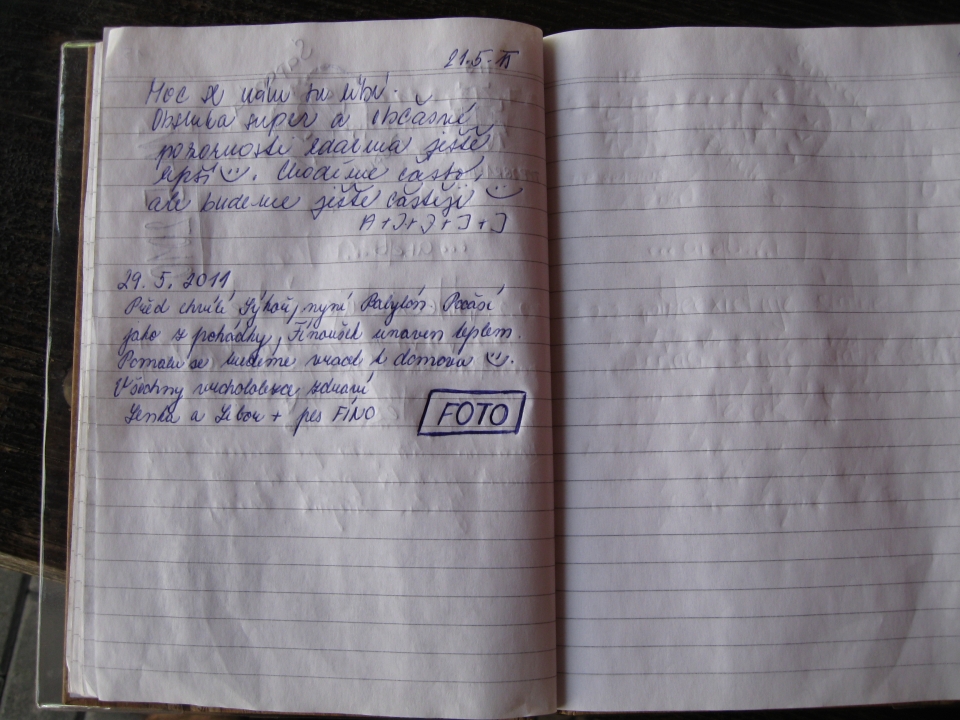 21.5.11
Moc se nám tu líbí.
Obsluha super a občasné
pozornosti zdarma ještě
lepší :-). Chodíme často,
ale budeme ještě častěji :-)
A+J+J+J+J
29. 5. 2011
Před chvílí Sýkoř, nyní Babylón. Počasí
jako z pohádky, Fínoušek unaven teplem.
Pomalu se budeme vracet k domovu :-).
Všechny vrcholobexe zdraví
Lenka a Libor + pes FÍNO
FOTO